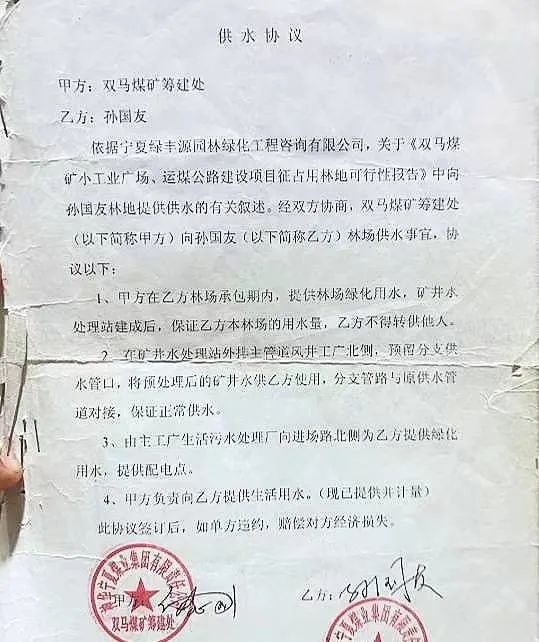 供水协议
甲方：双马煤矿筹建处
乙方：孙国友
依据宁夏绿丰源园林绿化工程咨询有限公司，关于《双马煤
矿小工业广场、运煤公路建设项目征占用林地可行性报告》中向
孙国友林地提供供水的有关叙述。经双方协商，双马煤矿筹建处
（以下简称甲方）向孙国友（以下简称乙方）林场供水事宜，协
议以下：
1、甲方在乙方林场承包期内，提供林场绿化用水，矿井水
处理站建成后，保证乙方本林场的用水量，乙方不得转供他人。
2、在矿井水处理站外排主管道风井工广北侧，预留分支供
水管口，将预处理后的矿井水供乙方使用，分支管路与原供水管
道对接，保证正常供水。
3、由主工广生活污水处理厂向进场路北侧为乙方提供绿化
用水，提供配电点。
4、甲方负责向乙方提供生活用水。（现已提供并计量）
此协议签订后，如单方违约，赔偿对方经济损失。
宁夏煤业集团有限责任
甲方 乙方：孙国友
双马煤矿筹建处
宁夏煤业集团有限责任